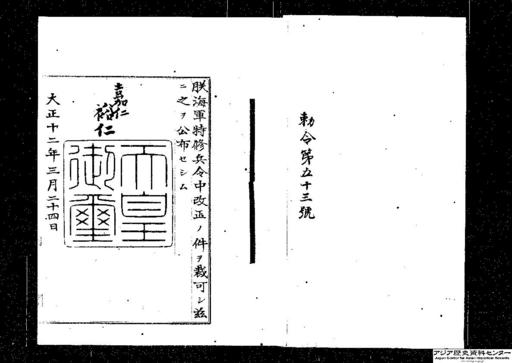 勅令第五十三號
朕海軍特修兵令中改正ノ件ヲ裁可シ茲
ニ之ヲ公布セシム
嘉仁
裕仁
天皇
御璽
大正十二年三月二十四日
アジア歴史資料センター
Japan Center for Asian Historical Records